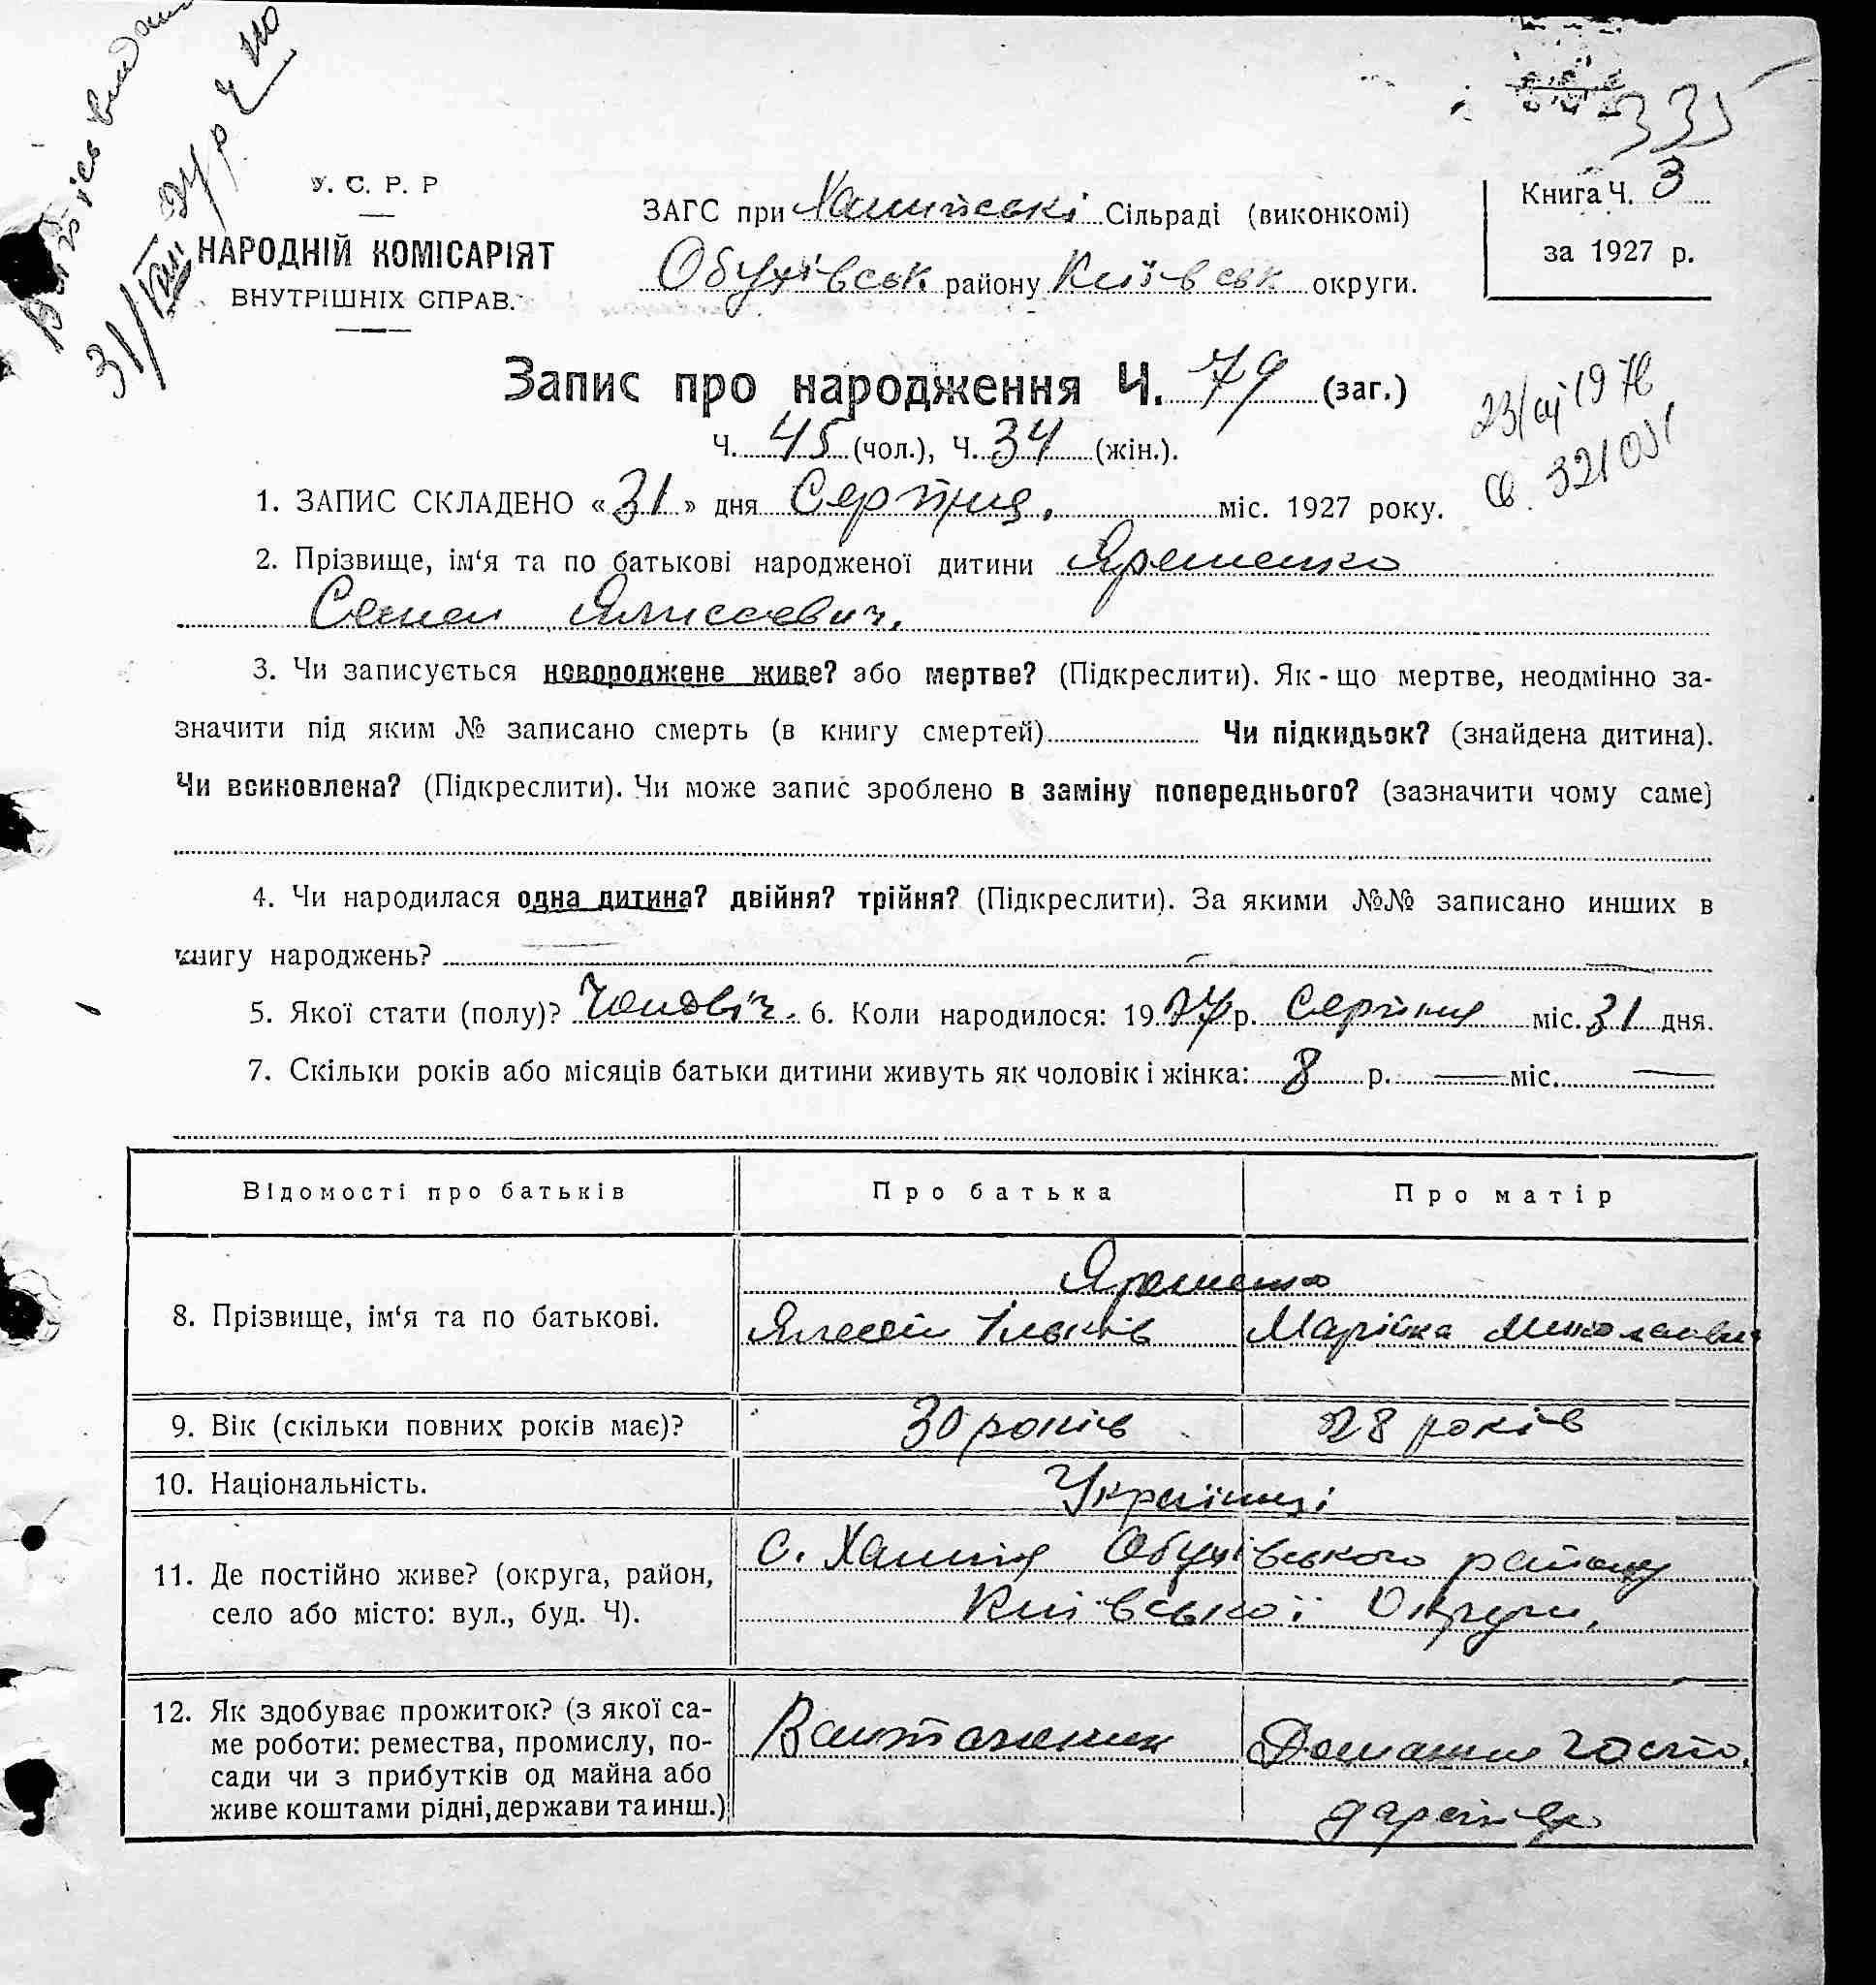 Витяг видано
31/VIII 27 р. Ч 110
335
У. С. Р. Р
НАРОДНІЙ КОМІСАРІЯТ
ВНУТРІШНІХ СПРАВ.
ЗАГС при Халипські Сільраді (виконкомі)
Обухівськ. району Київськ округи.
Книга Ч. 3
за 1927 р.
Запис про народження Ч. 79 (заг.)
Ч. 45 (чол.), Ч. 34 (жін.).
1976
321051
1. ЗАПИС СКЛАДЕНО «31» дня Серпня. міс. 1927 року.
2. Прізвище, ім‘я та по батькові народженої дитини Ярошенко
Семен
3. Чи записується новороджене живе? або мертве? (Підкреслити). Як-що мертве, неодмінно за-
значити під яким № записано смерть (в книгу смертей) Чи підкидьок? (знайдена дитина).
Чи всиновлена? (Підкреслити). Чи може запис зроблено в заміну попереднього? (зазначити чому саме)
4. Чи народилася одна дитина? двійня? трійня? (Підкреслити). За якими №№ записано инших в
книгу народжень?
5. Якої стати (полу)? Чоловіч. 6. Коли народилося: 1927 р. Серпня міс. 31 дня.
7. Скільки років або місяців батьки дитини живуть як чоловік і жінка: 8 р. — міс. —
Відомості про батьків
Про батька
Про матір
8. Прізвище, ім‘я та по батькові.
Ярошенко
Марійка Миколаївна
9. Вік (скільки повних років має)?
30 років
28 років
10. Національність.
Українці
11. Де постійно живе? (округа, район,
село або місто: вул., буд. Ч).
с. Халипя Обухівського району
Київської Округи.
12. Як здобуває прожиток? (з якої са-
ме роботи: ремества, промислу, по-
сади чи з прибутків од майна або
живе коштами рідні, держави та инш.)
Домашня госпо
дарка